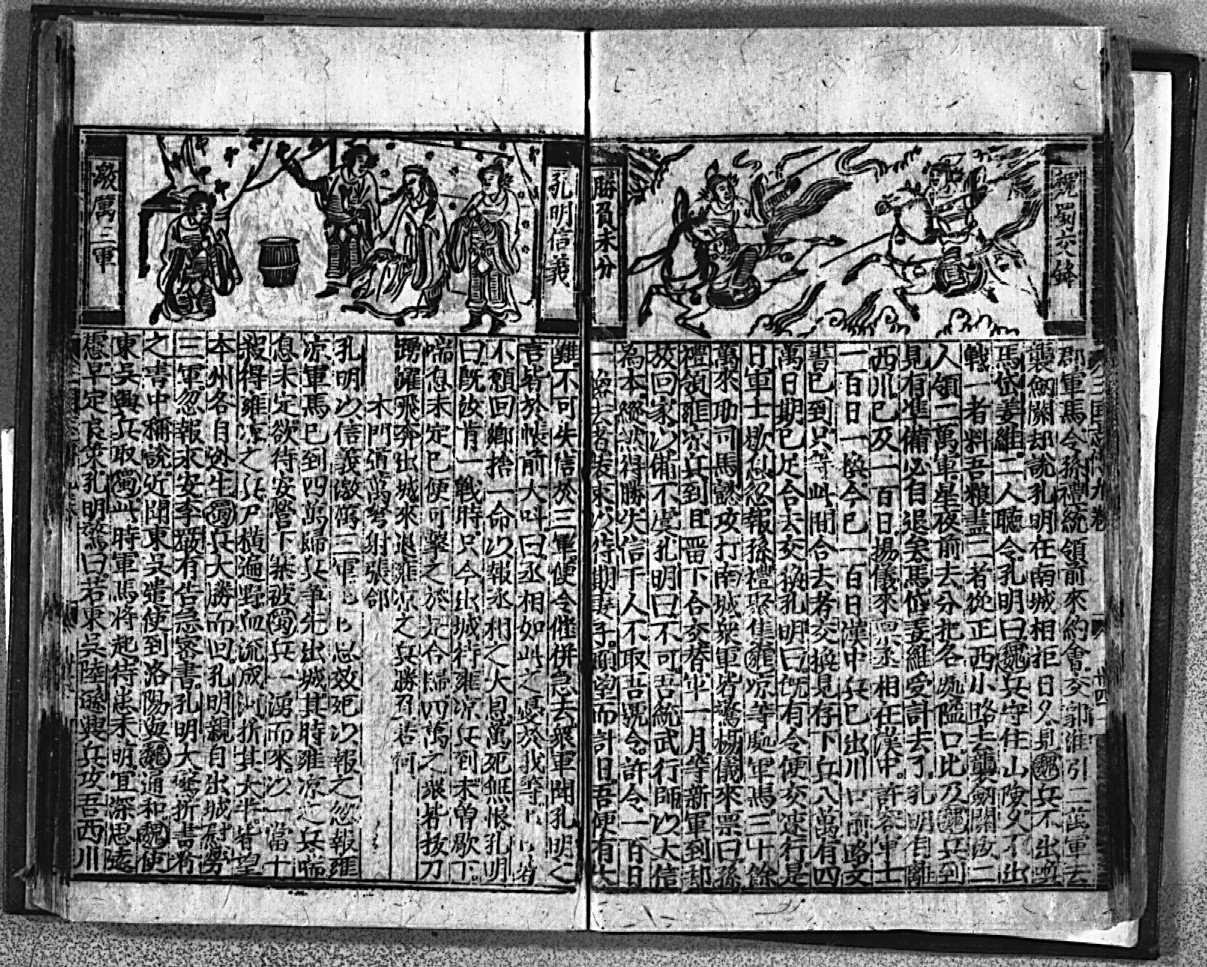 魏蜀交鋒
勝負未分
郡軍馬令孫禮統領前來約會交郭淮引二萬軍去
襲劍關却說孔明在南城相拒日久見魏兵不出喚
馬岱姜維二人聽令孔明曰魏兵守住山險又不出
戰一者料吾粮盡二者從正西小路去襲劍關汝二
人領二萬軍星夜前去分把各處隘口比乃魏兵到
見有准備必自退矣馬岱姜維受計去了孔明自離
西川已及一百日楊儀來禀丞相在漢中許容軍士
一百日一換今已一百日漢中兵已出川口前路文
書已到只等此間合去者交換見存下兵八萬有四
萬日期已足合去交換孔明曰既有令便交速行是
日軍士歇息忽報孫禮聚集雍凉等處軍馬三十餘
萬來助司馬懿攻打南城衆軍皆驚楊儀來票曰孫
禮領雍凉兵到且留下合交替軍一月等新軍到却
放回家以備不虞孔明曰不可吾統武行師以大信
為本縱然得勝失信于人不取吾號令許令一百日
一換去者裝束以待期妻子 望而計日吾便有大
孔明信義
激萬三軍
難不可失信於三軍便令催併急去衆軍聞孔明之
言皆於帳前大叫曰丞相如此之憂於我等 皆
不願回鄉捨一命以報丞相之大恩萬死無恨孔明
曰既汝肯一戰時只今出城待雍凉兵到未曾歇下
喘息未定已便可擊之於是合歸四萬之衆皆拔刀
踴躍飛奔出城來退雍凉之兵勝負若何
木門道萬弩射張郃
孔明以信義激勵三軍 以報之忽報雍
凉軍馬已到四萬歸兵爭先出城其時雍凉之兵喘
息未定欲待安營下寨被蜀兵一湧而來以一當十
殺得雍凉之兵尸橫遍野血流成 折其大半皆望
本州各自逃生蜀兵大勝而回孔明親自出城 勞
三軍忽報永安李嚴有告急密書孔明大驚折書看
之書中稱說近聞東吳遣使到洛陽與魏通和魏使
東吳興兵取蜀此時軍馬將起侍 未明宜深思遠
慮早定良策孔明驚曰若東吳陸遜興兵攻吾西川